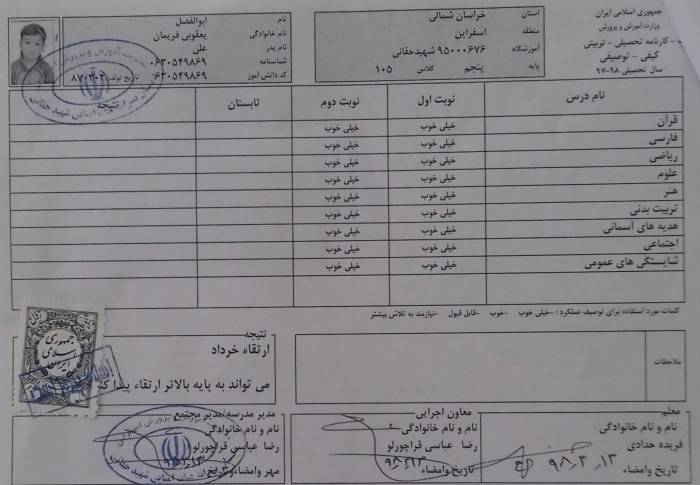 جمهوری اسلامی ایران
وزارت آموزش و پرورش
کارنامه تحصیلی - تربیتی
کیفی - توصیفی
سال تحصیلی ۹۸-۹۷
استان خراسان شمالی
منطقه اسفراین
آموزشگاه ۹۵۰۰۰۶۷۶ شهیدحقانی
پایه پنجم کلاس ۱۰۵
نام ابوالفضل
نام خانوادگی یعقوبی فریمان
نام پدر علی
شناسنامه ۰۶۳۰۵۴۹۸۶۹
کد دانش آموز ۰۶۳۰۵۴۹۸۶۹ تاریخ تولد
نام درس نوبت اول نوبت دوم تابستان نتیجه
قرآن خیلی خوب خیلی خوب
فارسی خیلی خوب خیلی خوب
ریاضی خیلی خوب خیلی خوب
علوم خیلی خوب خیلی خوب
هنر خیلی خوب خیلی خوب
تربیت بدنی خیلی خوب خیلی خوب
هدیه های آسمانی خیلی خوب خیلی خوب
اجتماعی خیلی خوب خیلی خوب
شایستگی های عمومی خیلی خوب خیلی خوب
کلمات مورد استفاده برای توصیف عملکرد : -خیلی خوب -خوب -قابل قبول -نیازمند به تلاش بیشتر
ملاحظات
نتیجه
ارتقاء خرداد
می تواند به پایه بالاتر ارتقاء پیدا
جمهوری
اسلامی
ایران
معلم
نام و نام خانوادگی
فریده حدادی
تاریخ وامضاء ۹۸٫۳٫۱۳
معاون اجرایی
نام و نام خانوادگی
رضا عباسی قراجورلو
تاریخ وامضاء
مدیر مدرسه/مدیر مجتمع
نام و نام خانوادگی
رضا عباسی قراجورلو
مهر وامضاء وتاریخ